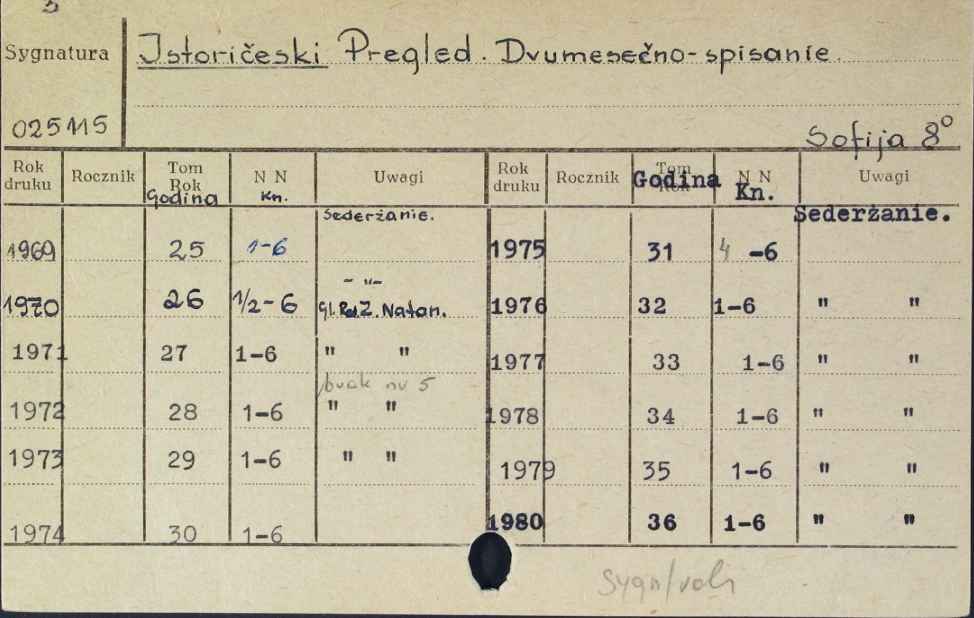 3
Sygnatura Istoričeski Pregled. Dvumesečno-spisanie.
025115
Sofija 8°
Rok druku Rocznik Tom Rok Godina N N Kn. Uwagi Rok druku Rocznik Tom Rok Godina N N Kn. Uwagi
Sederżanie. Sederżanie.
1969 25 1-6 1975 31 4 -6
- " -
1970 26 1/2-6 Gl. Red Z. Natan. 1976 32 1-6 " "
1971 27 1-6 " " 1977 33 1-6 " "
brak nr 5
1972 28 1-6 " " 1978 34 1-6 " "
1973 29 1-6 " " 1979 35 1-6 " "
1974 30 1-6 1980 36 1-6 " "